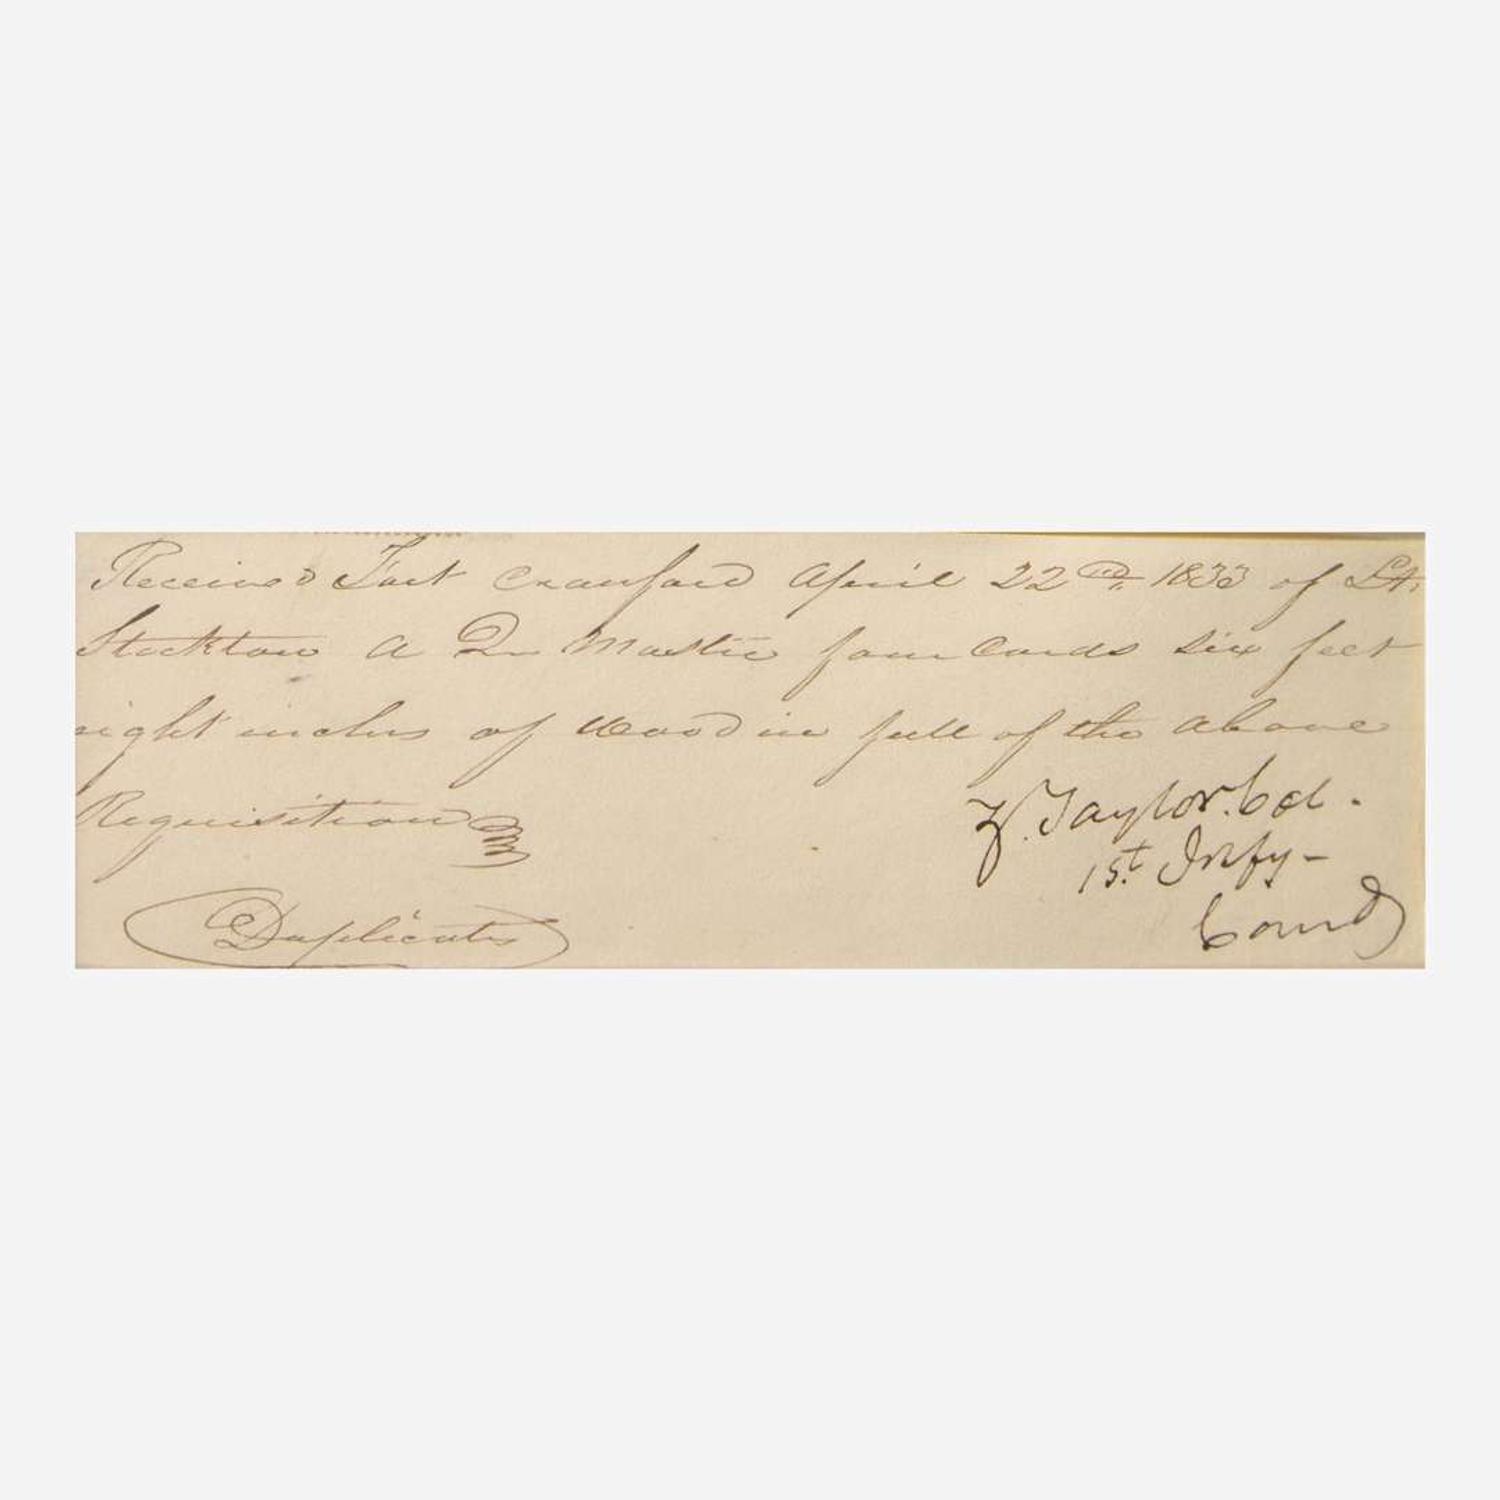 Received Fort Crawford April 22nd. 1833 of Lt.
Stockton A Qr Master four Cords six feet
eight inches of Wood in full of the above
Requisition
Z. Taylor. Col.
1st. Infy-
Comd
Duplicates